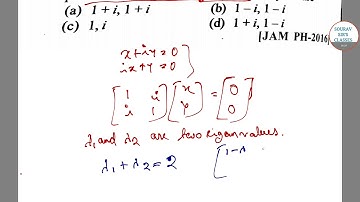 (a) 1 + i, 1 + i (b) 1 − i, 1 − i
(c) 1, i (d) 1 + i, 1 − i
[JAM PH-2016]
SOURAV SIR'S CLASSES
x + iy = 0
ix + y = 0
[1 i; i 1] [x; y] = [0; 0]
λ1 and λ2 are two eigenvalues.
λ1 + λ2 = 2 [1-λ